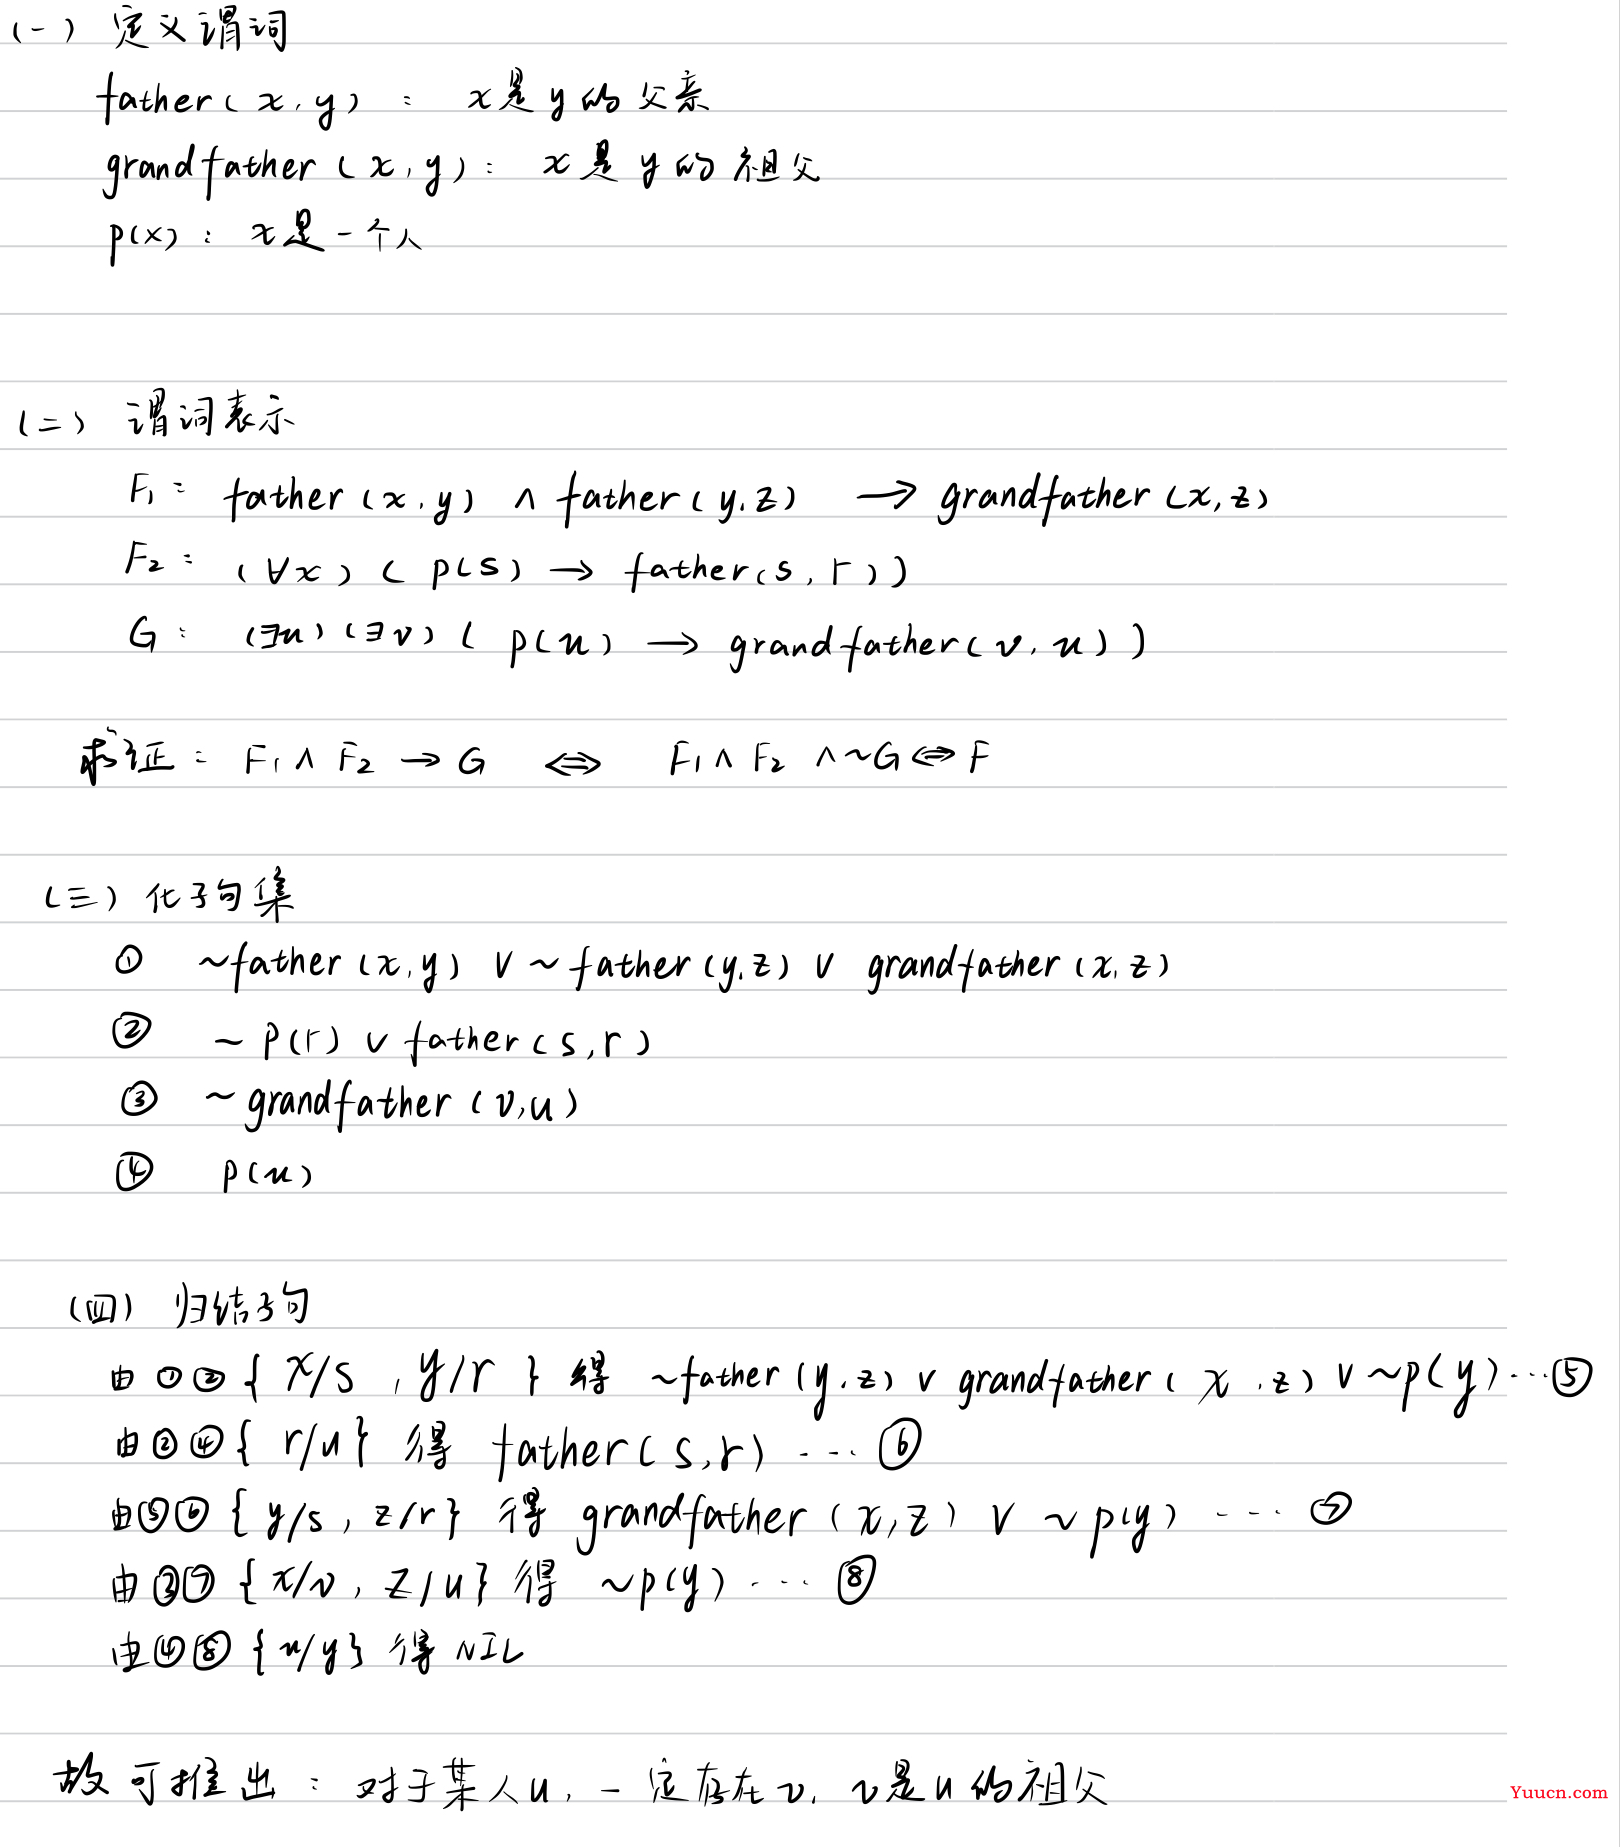 (一) 定义谓词
father(x,y): x是y的父亲
grandfather(x,y): x是y的祖父
p(x): x是一个人
(二) 谓词表示
F₁: father(x,y) ∧ father(y,z) → grandfather(x,z)
F₂: (∀x)(p(s) → father(s,r))
G: (∃u)(∃v)(p(u) → grandfather(v,u))
求证: F₁∧F₂→G ⇔ F₁∧F₂∧~G⇔F
(三) 化子句集
① ~father(x,y) ∨ ~father(y,z) ∨ grandfather(x,z)
② ~p(r) ∨ father(s,r)
③ ~grandfather(v,u)
④ p(u)
(四) 归结子句
由①②{x/s,y/r}得 ~father(y,z) ∨ grandfather(x,z) ∨ ~p(y)…⑤
由②④{r/u}得 father(s,r)…⑥
由⑤⑥{y/s,z/r}得 grandfather(x,z) ∨ ~p(y)…⑦
由③⑦{x/v,z/u}得 ~p(y)…⑧
由④⑧{u/y}得NIL
故可推出: 对于某人u,一定存在v,v是u的祖父
Yuucn.com